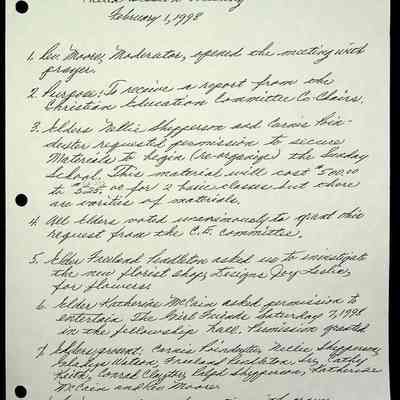 February 1, 1998
1. Rev Moore, Moderator, opened the meeting with
prayer.
2. Purpose: To receive a report from the
Christian Education Committee Co-Chairs.
3. Elders Nellie Shepperson and Carnis Poin-
dexter requested permission to secure
Materials to begin (re-organize) the Sunday
School. This material will cost $500.00
to $525.00 for 2 basic classes but there
are varities of materials.
4. All Elders voted unanimously to grant this
request from the C.E. committee.
5. Elder Freeland Pendleton asked us to investigate
the new florist shop, Designs Joy Leslie,
for flowers.
6. Elder Katherine McCain asked permission to
entertain The Girl Friends Saturday 7, 1998
in the fellowship hall. Permission granted
7. Elders present: Carnis Poindexter, Nellie Shepperson,
Watson, Freeland Pendleton, Sr., Cathy
Keith, Conrad Clayton, Ralph Shepperson, Katherine
McCain and Rev Moore.